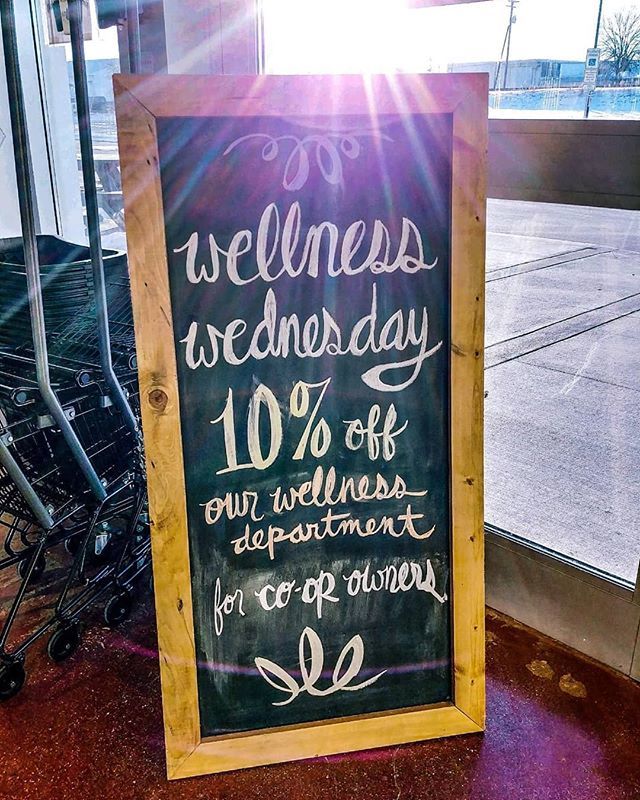 wellness
wednesday
10% off
our wellness
department
for co-op owners